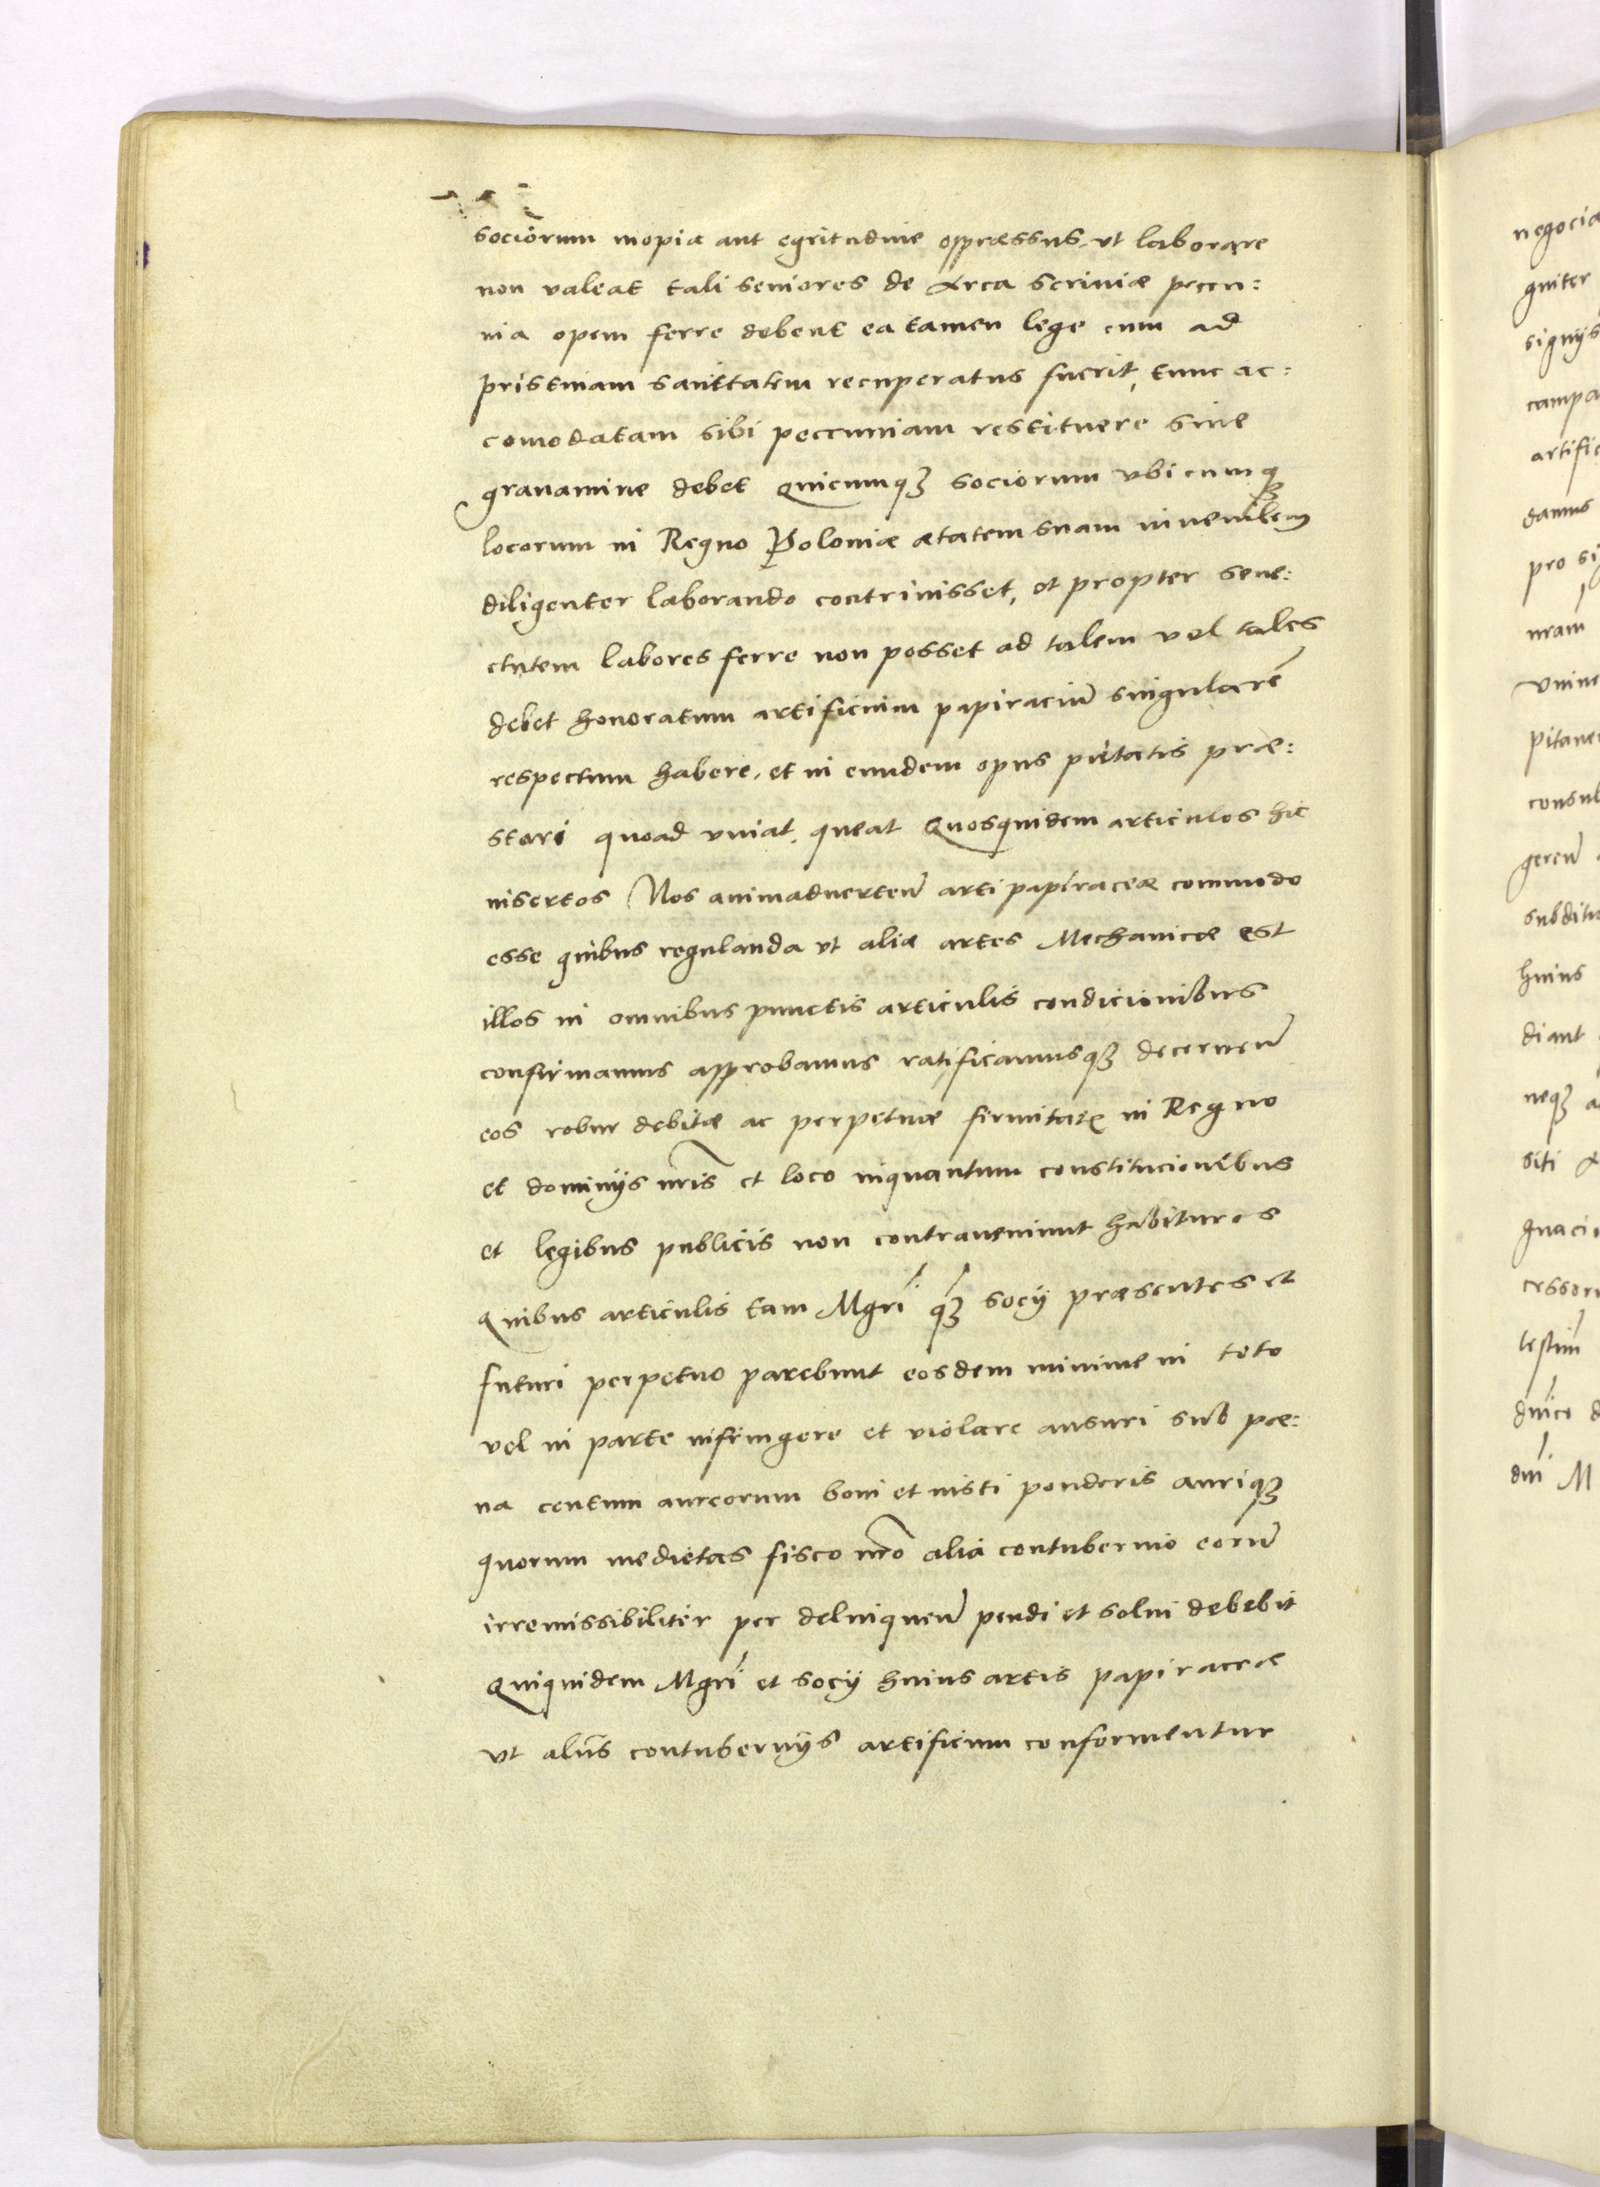 sociorum inopia aut egritudine oppræssus, ut laborare
non valeat tali seniores de Arca scriniæ peccu:
nia opem ferre debent ea tamen lege cum ad
pristinam sanitatem recuperatus fuerit, tunc ac:
comodatam sibi peccuniam restituere sine
gravamine debet Quicumqꝫ sociorum ubicumqꝫ
locorum in Regno Poloniæ ætatem suam iuvenilem
diligenter laborando contrivisset, et propter sene:
ctutem labores ferre non posset ad talem vel tales
debet honoratum artificium papiraciũ singularẽ
respectum habere, et in eundem opus pietatis præ:
stari quoad vivat, queat Quosquidem articulos hic
insertos Nos animadverteñ arti papiraceæ commodo
esse quibus regulanda ut aliæ artes Mechanicæ est
illos in omnibus punctis articulis condicionibus
confirmamus approbamus ratificamusqꝫ decerneñ
eos robur debitæ ac perpetuæ firmitatꝭ in Regno
et dominÿs nr̃is et loco inquantum constitucionibus
et legibus publicis non contraveniunt habituros
Quibus articulis tam Mgri qꝫ socÿ præsentes et
futuri perpetuo parebunt eosdem minime in toto
vel in parte infringere et violare ausuri sub pœ:
na centum aureorum boni et iusti ponderis auriqꝫ
quorum medietas fisco nr̃o alia contubernio eorũ
irremissibiliter per delinqueñ pendi et solvi debebit
Quiquidem Mgri et socÿ huius artis papiraceæ
ut aliis contubernÿs artificum conformentur
negocia
gniter
signÿs
campa
artific
damus
pro si
nram
Unive
pitane
consul
gereñ
subditu
huius
diant
neqꝫ a
siti
gnacio
cessoru
testim
dnico d
dni M